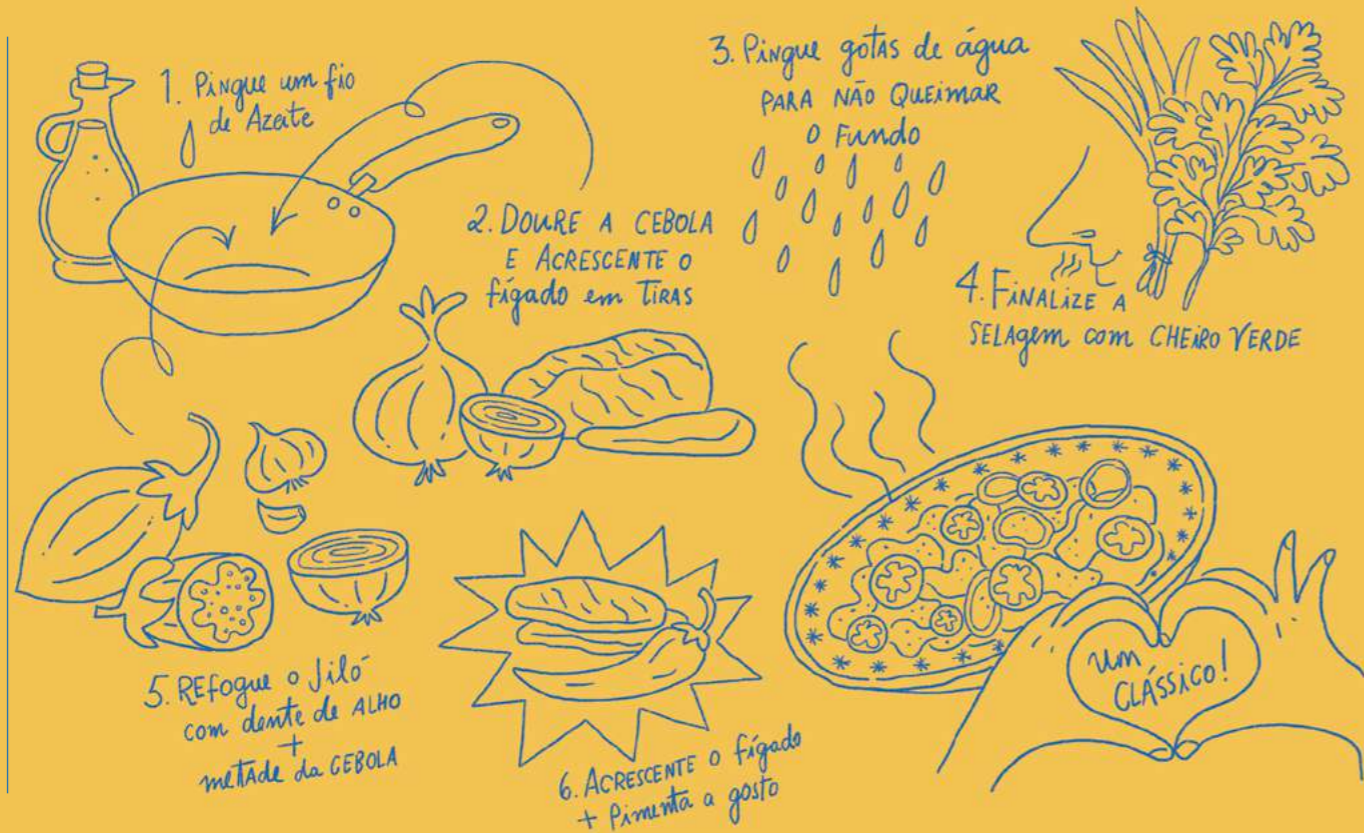 1. Pingue um fio
de Azeite
2. DOURE A CEBOLA
E ACRESCENTE O
fígado em TIRAS
3. Pingue gotas de água
PARA NÃO QUEIMAR
O Fundo
4. FINALIZE A
SELAgem com CHEIRO VERDE
5. REfogue o Jiló
com dente de ALHO
+
metade da CEBOLA
6. ACRESCENTE O fígado
+ Pimenta a gosto
um
CLÁSSICO!